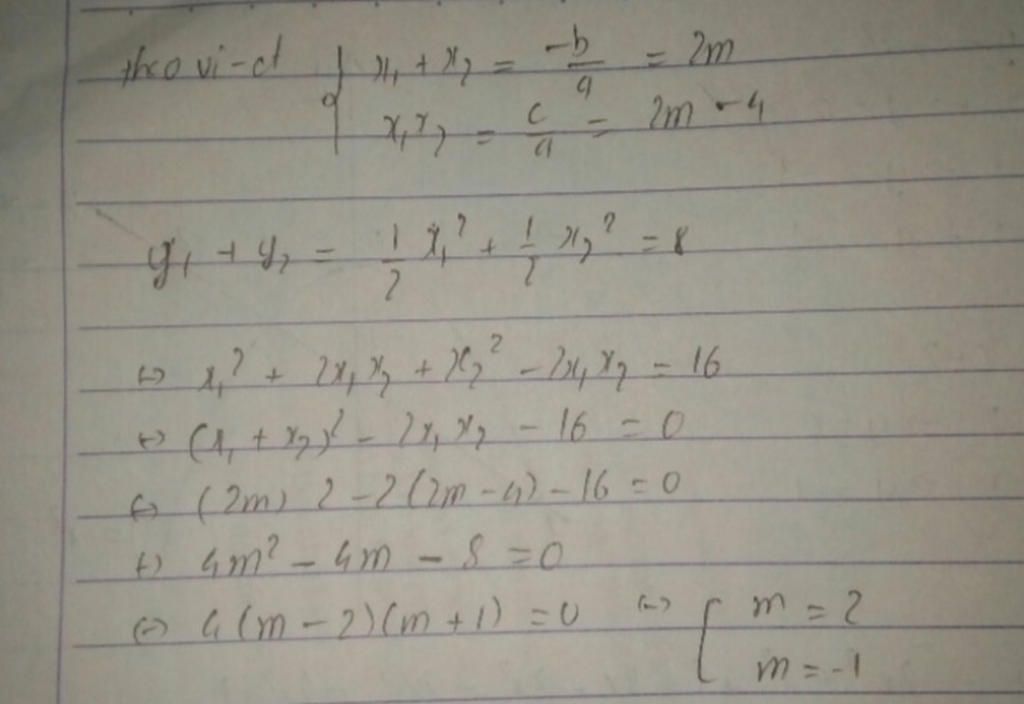 theo vi-et { x₁ + x₂ = -b/a = 2m
x₁x₂ = c/a = 2m - 4
y₁ + y₂ = 1/2 x₁² + 1/2 x₂² = 8
⇔ x₁² + 2x₁x₂ + x₂² - 2x₁x₂ = 16
⇔ (x₁ + x₂)² - 2x₁x₂ - 16 = 0
⇔ (2m)2 - 2(2m - 4) - 16 = 0
⇔ 4m² - 4m - 8 = 0
⇔ 4(m - 2)(m + 1) = 0 ⇔ [ m = 2
m = -1